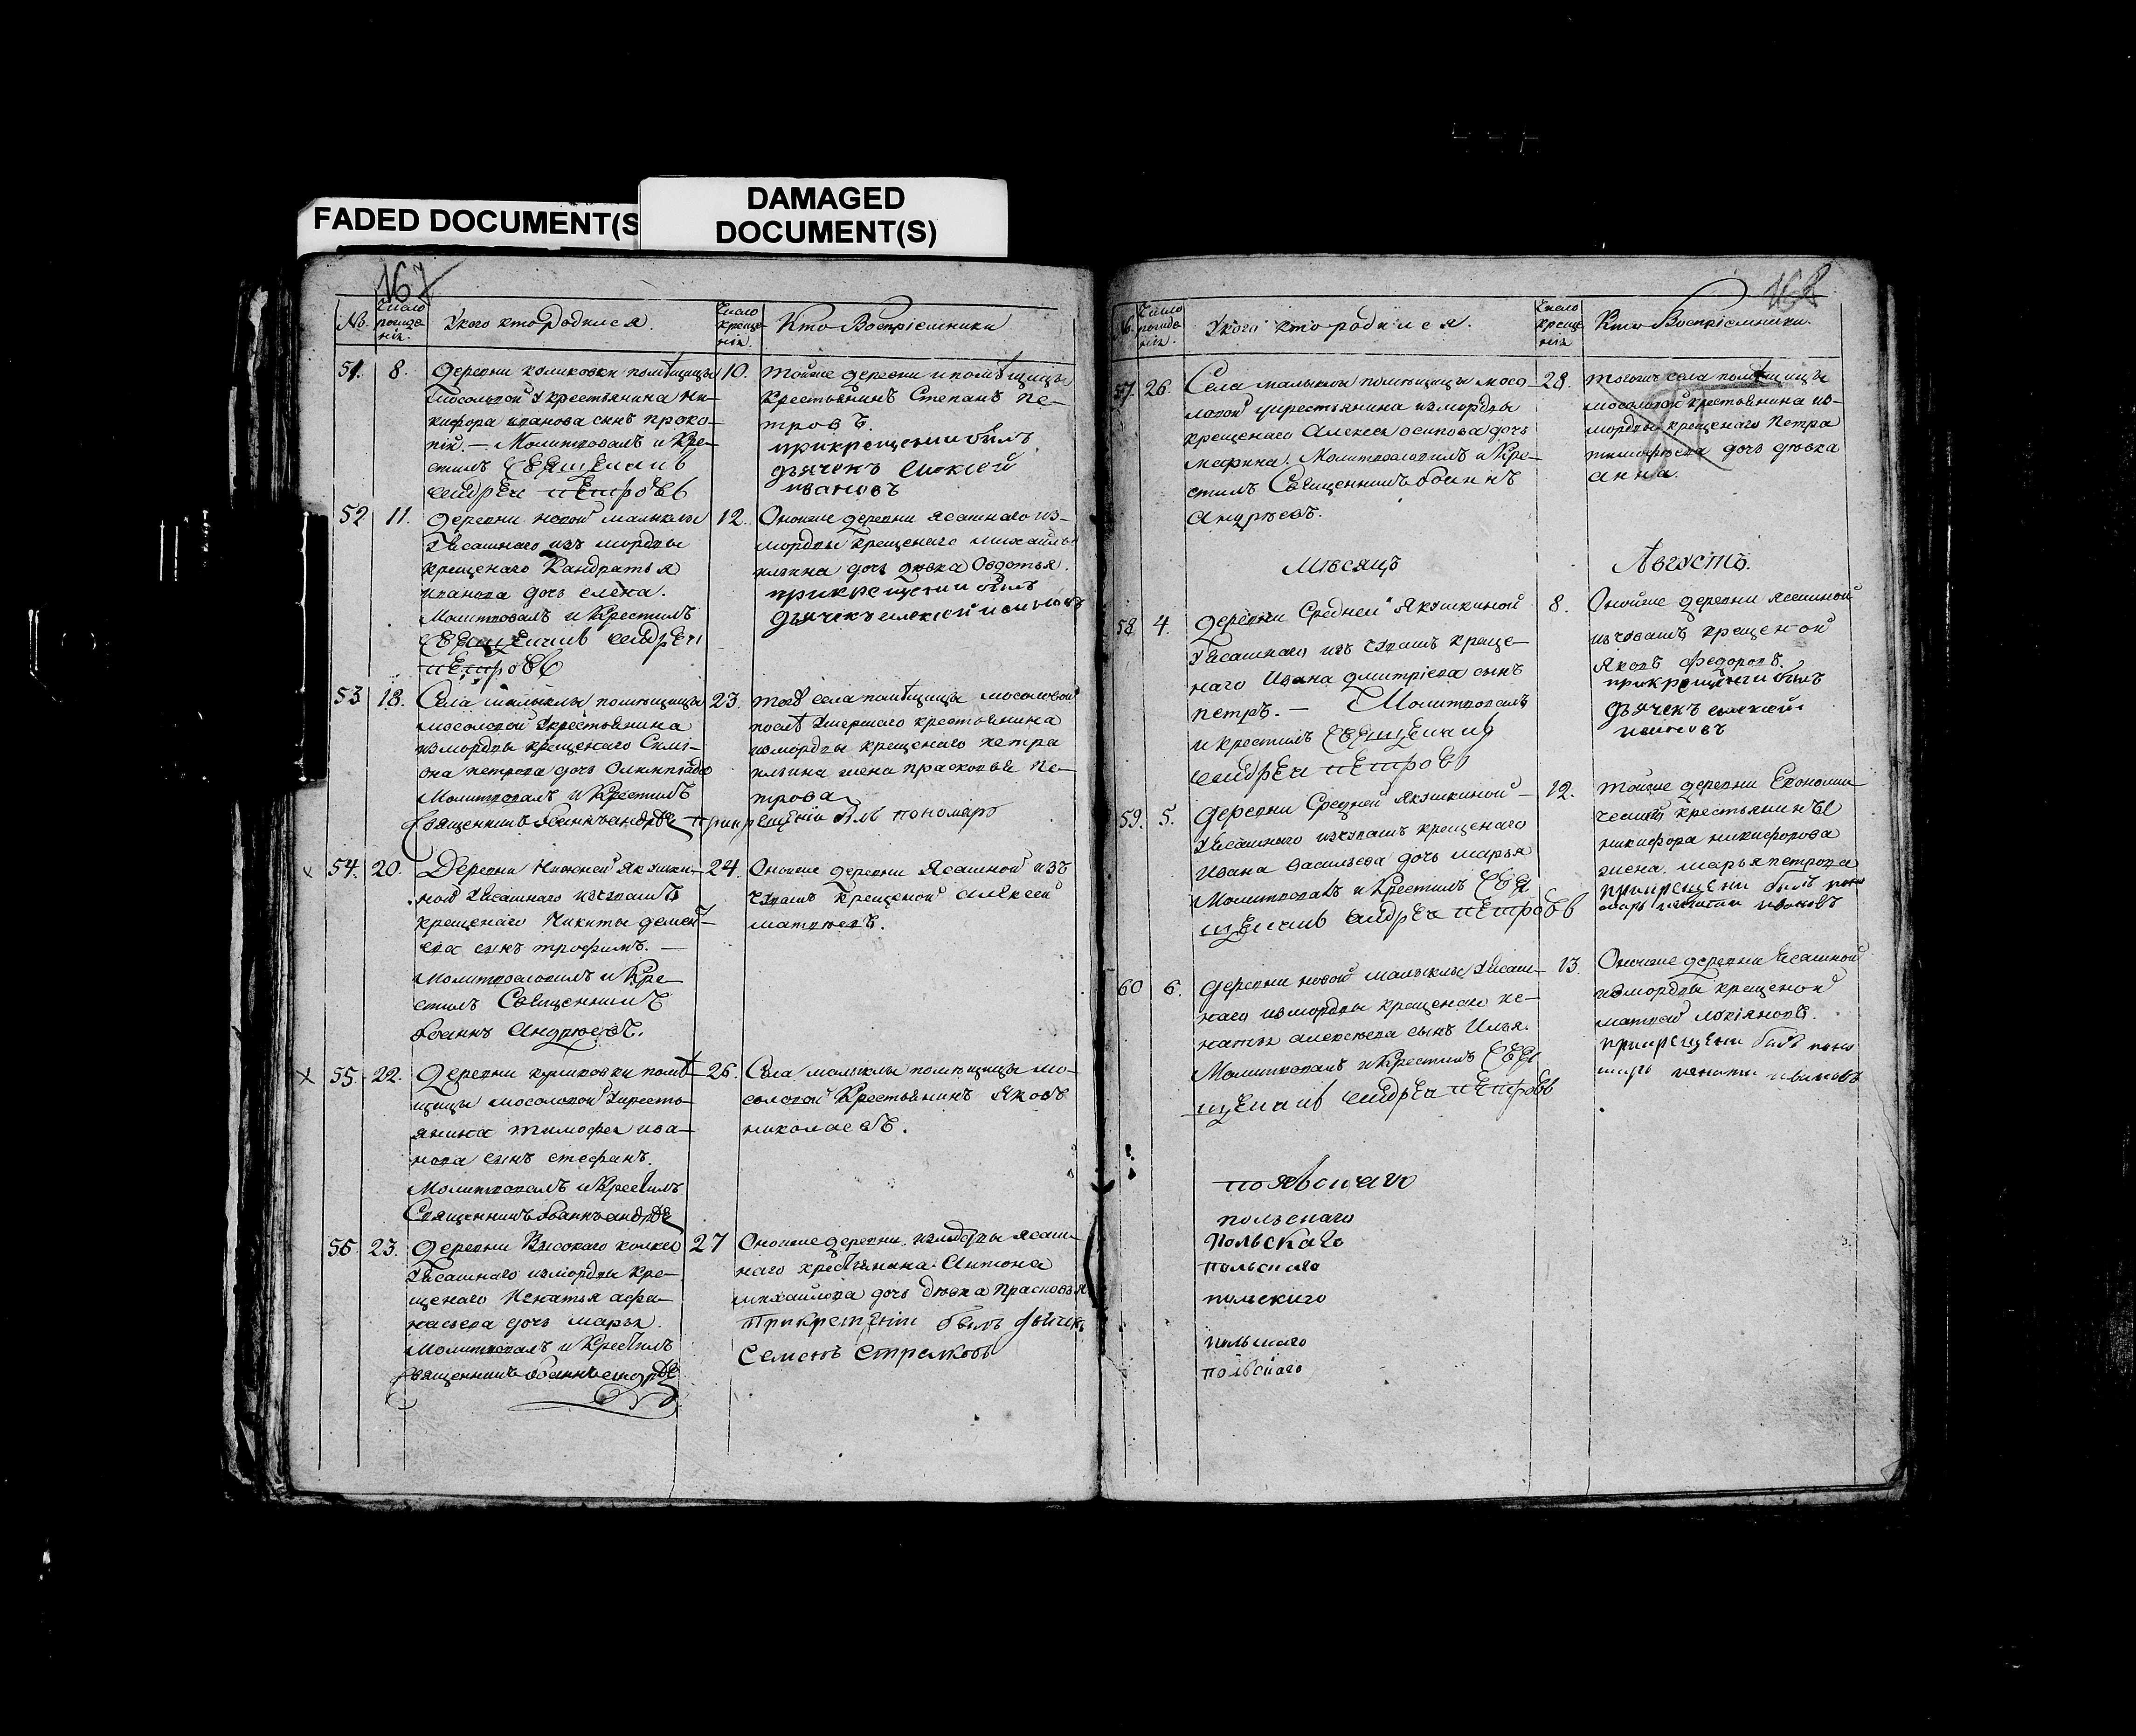 FADED DOCUMENT(S
DAMAGED
DOCUMENT(S)
167
№
Число рожденія.
У кого кто родился.
Число крещенія
Кто Воспріемники
51. 8.
деревни куликовки помѣщицы
Мосоловой у крестьянина Ни-
кифора иванова сынъ Проко-
пій. — Молитвовалъ и Кре-
стилъ Священникъ
андрей петровъ
10.
тойже деревни и помѣщицы
крестьянинъ Степанъ Пе-
тровъ.
при крещении былъ
дьячекъ алексей
ивановъ
52 11.
деревни новой малыклы
у ясашнаго изъ мордвы
крещенаго Кандратья
иванова дочь елена.
Молитвовалъ и Крестилъ
священникъ андрей
петровъ
12.
Оноиже деревни ясашнаго из-
мордвы крещенаго михаила
ильина дочь девка Овдотья.
при крещении былъ
дьячекъ алексей ивановъ
53 18.
Села малыклы помѣщицы
мосоловой у крестьянина
измордвы крещенаго Симі-
она петрова дочь Олимпіада
Молитвовалъ и Крестилъ
священникъ Іоаннъ андрѣе
23.
тогѡ села помѣщицы мосоловой
послѣ умершаго крестьянина
измордвы крещенаго петра
ильина жена прасковья Пе-
трова
при крещеніи былъ пономарь
54. 20.
Деревни Нижней Якушки-
ной у ясашнаго изчувашъ
крещенаго Никиты демен-
ева сынъ трофимъ. —
Молитвословилъ и Кре-
стилъ Священникъ
Іоаннъ Андреевъ.
24.
Оноиже деревни Ясашной изъ
чувашъ крещеной алексей
матвеевъ.
55. 22.
Деревни куликовки помѣ-
щицы мосоловой у кресть-
янина тимофея ива-
нова сынъ стефанъ.
Молитвовалъ и Крестилъ
Священникъ Іоаннъ андрѣе
26.
Села малыклы помѣщицы мо-
соловой Крестьянинъ Яковъ
николаевъ.
56. 23.
деревни Высокаго колка
у ясашнаго измордвы кре-
щенаго Игнатья афа-
насьева дочь марья.
Молитвовалъ и Крестилъ
священникъ Іоаннъ андрѣе
27
Оноиже деревни измордвы ясаш-
наго крестьянина Антона
михаилова дочь девка Прасковья
При крещеніи былъ дьячекъ
Семенъ Стрелковъ
168
№
Число рожденія.
У кого кто родился.
Число крещенія
Кто Воспріемники.
57. 26.
Села малыклы помѣщицы мосо-
ловой у крестьянина измордвы
крещенаго Алексея осипова дочь
мафина. Молитвословилъ и Кре-
стилъ Священникъ Іоаннъ
Андреевъ.
28.
тогожъ села помѣщицы
мосоловой крестьянина из-
мордвы крещенаго Петра
тимофеева дочь девка
анна.
Мѣсяцъ
Августъ.
58. 4.
деревни Средней Якушкиной
у ясашнаго изъ чувашъ креще-
наго Ивана дмитріева сынъ
петръ. — Молитвовалъ
и крестилъ священникъ
андрей петровъ
8.
Оноиже деревни ясашной
изчувашъ крещеной
Яковъ федоровъ.
при крещении былъ
дьячекъ алексей
ивановъ
59. 5.
деревни Средней Якушкиной
у ясашнаго изчувашъ крещенаго
Ивана Васильева дочь марья
Молитвовалъ и Крестилъ свя
щенникъ андрей петровъ
12.
тойже деревни Економи
никифора никифорова
жена марья петрова
при крещени былъ поно
марь игнатий ивановъ
60 6.
деревни новой малыклы у ясаш-
наго измордвы крещенаго иг-
натья алексеева сынъ Илья.
Молитвовалъ и Крестилъ свя
щенникъ андрей петровъ
13.
Оноиже деревни ясашной
измордвы крещеной
матвей лукіяновъ.
при крещени былъ поно
марь игнатий ивановъ
польскаго
польскаго
Польскаго
польскаго
польскаго
польскаго
польскаго